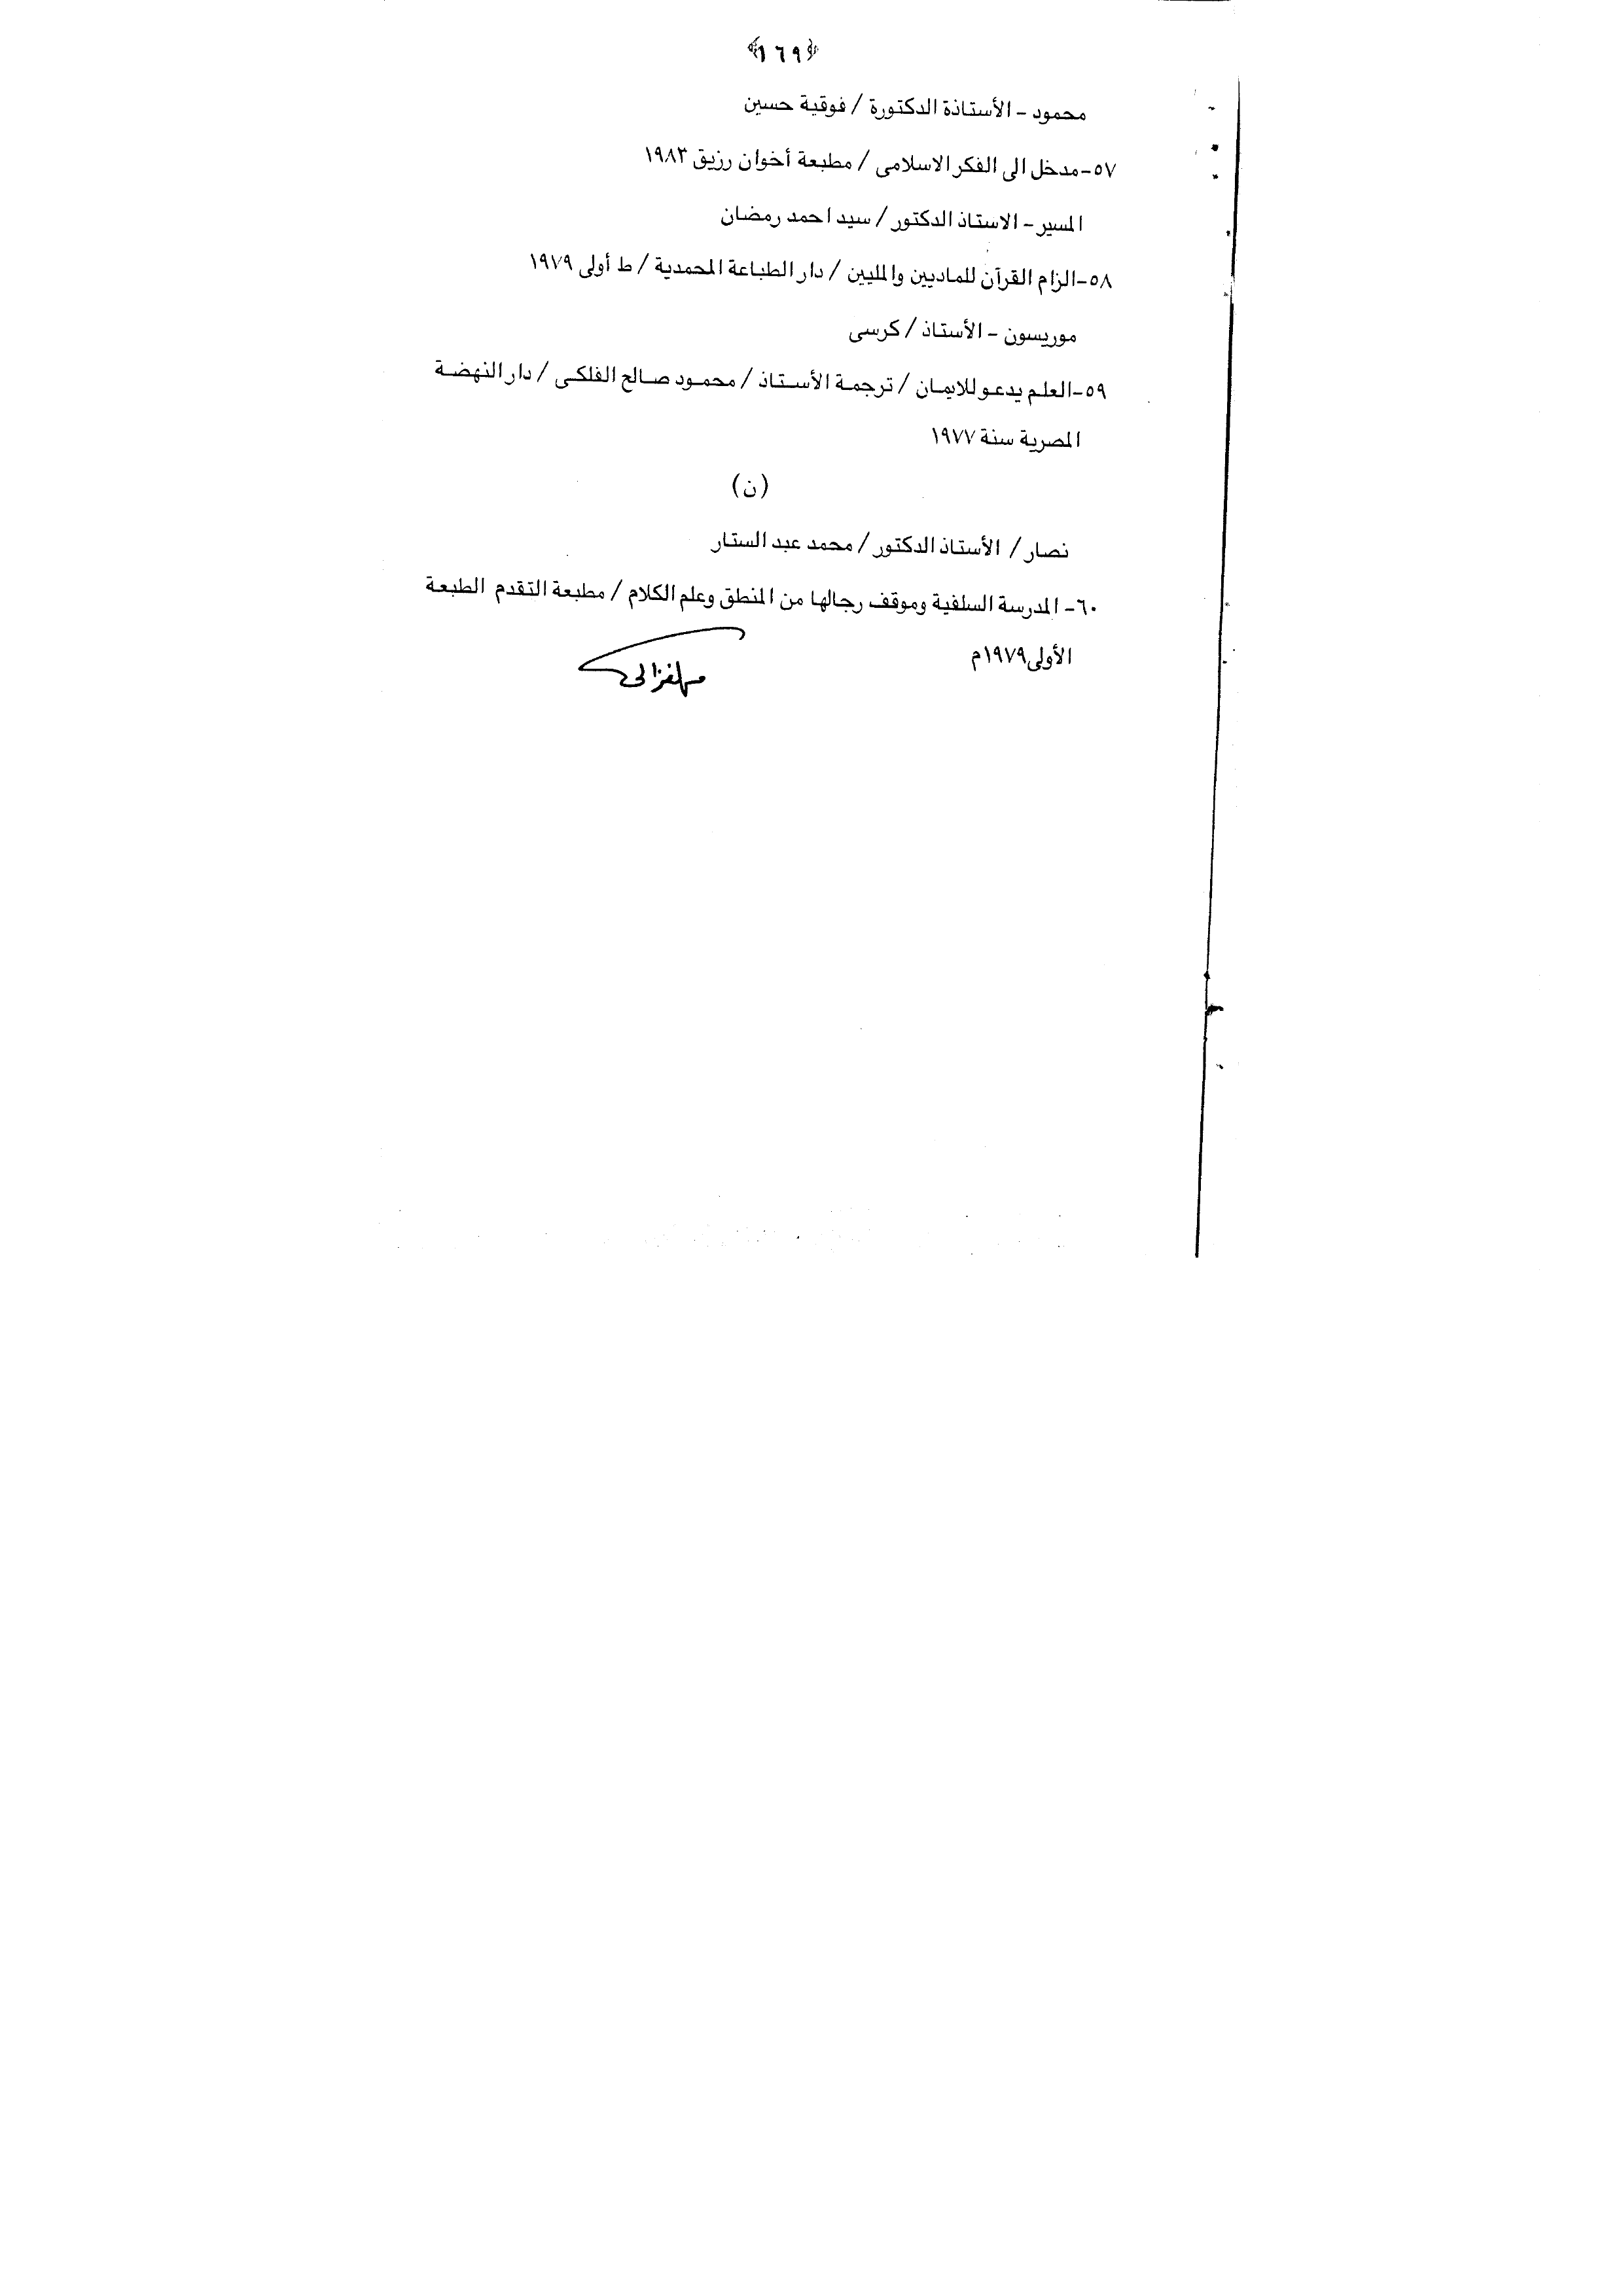 ﴿١٦٩﴾
محمود - الأستاذة الدكتورة / فوقية حسين
٥٧-مدخل الى الفكر الاسلامى / مطبعة أخوان رزيق ١٩٨٣
المسير - الاستاذ الدكتور / سيد احمد رمضان
٥٨-الزام القرآن للماديين والمليين / دار الطباعة المحمدية / ط أولى ١٩٧٩
موريسون - الأستاذ / كرسى
٥٩-العلم يدعو للايمان / ترجمة الأستاذ / محمود صالح الفلكى / دار النهضة
المصرية سنة ١٩٧٧
(ن)
نصار / الأستاذ الدكتور / محمد عبد الستار
٦٠- المدرسة السلفية وموقف رجالها من المنطق وعلم الكلام / مطبعة التقدم الطبعة
الأولى ١٩٧٩م